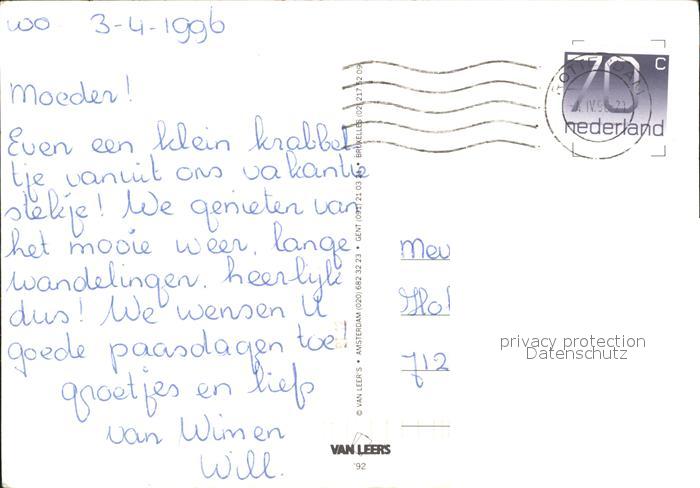 wo 3-4-1996
Moeder!
Even een klein krabbel
tje vanuit ons vakantie
stekje! We genieten van
het mooie weer, lange
wandelingen, heerlijk
dus! We wensen U
goede paasdagen toe
groetjes en liefs
van Wim en
Will.
© VAN LEER'S • AMSTERDAM (020) 682 32 23 • GENT (091) 21 03 • BRUXELLES (02) 217 52 09
VAN LEER'S
'92
70 c
nederland
ROTTERDAM
Mev
Hol
712
privacy protection
Datenschutz